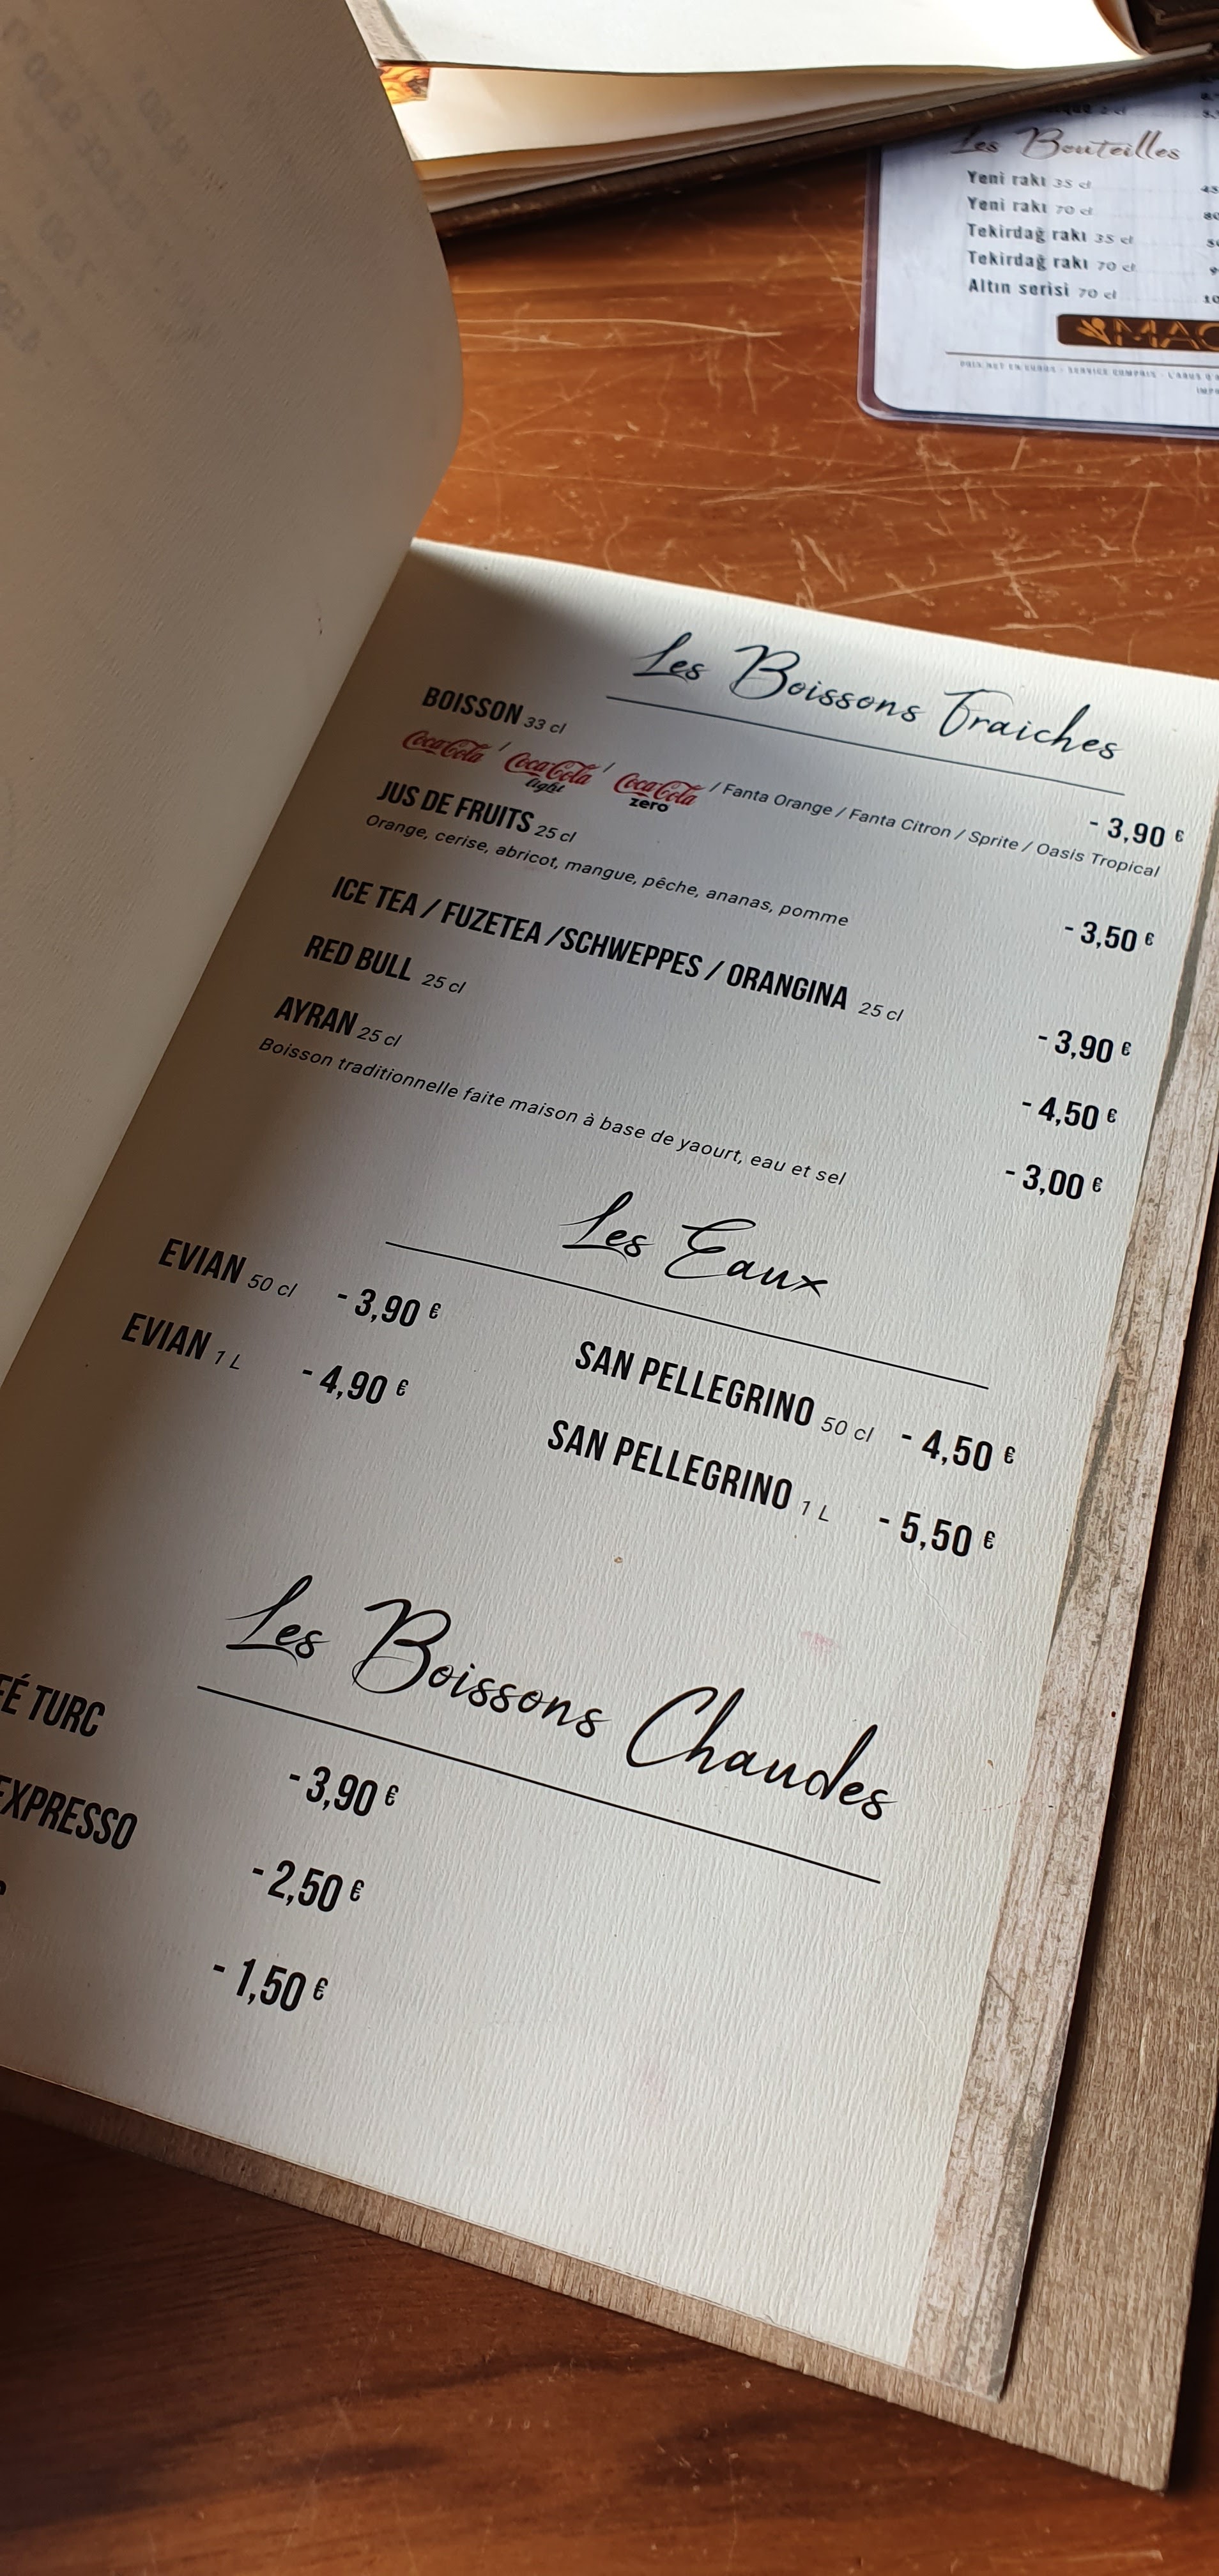 Les Bouteilles
Yeni rakı 35 cl
Yeni rakı 70 cl
Tekirdağ rakı 35 cl
Tekirdağ rakı 70 cl
Altın serisi 70 cl
Les Boissons Fraiches
BOISSON 33 cl - 3,90 €
Coca-Cola / Coca-Cola light / Coca-Cola zero / Fanta Orange / Fanta Citron / Sprite / Oasis Tropical
JUS DE FRUITS 25 cl - 3,50 €
Orange, cerise, abricot, mangue, pêche, ananas, pomme
ICE TEA / FUZETEA /SCHWEPPES / ORANGINA 25 cl - 3,90 €
RED BULL 25 cl - 4,50 €
AYRAN 25 cl - 3,00 €
Boisson traditionnelle faite maison à base de yaourt, eau et sel
Les Eaux
EVIAN 50 cl - 3,90 €
EVIAN 1 L - 4,90 €
SAN PELLEGRINO 50 cl - 4,50 €
SAN PELLEGRINO 1 L - 5,50 €
Les Boissons Chaudes
FÉ TURC - 3,90 €
EXPRESSO - 2,50 €
- 1,50 €